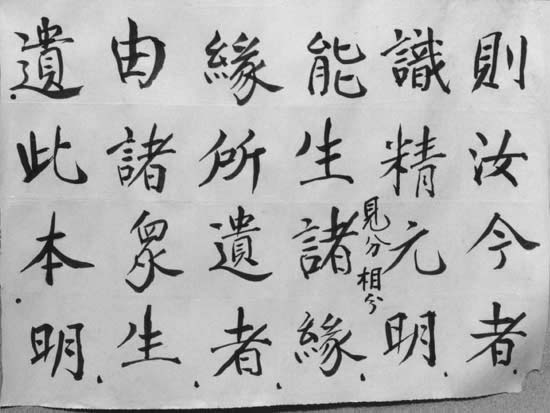 則汝今者
識精元明
見分相分
能生諸緣
緣所遺者
由諸眾生
遺此本明